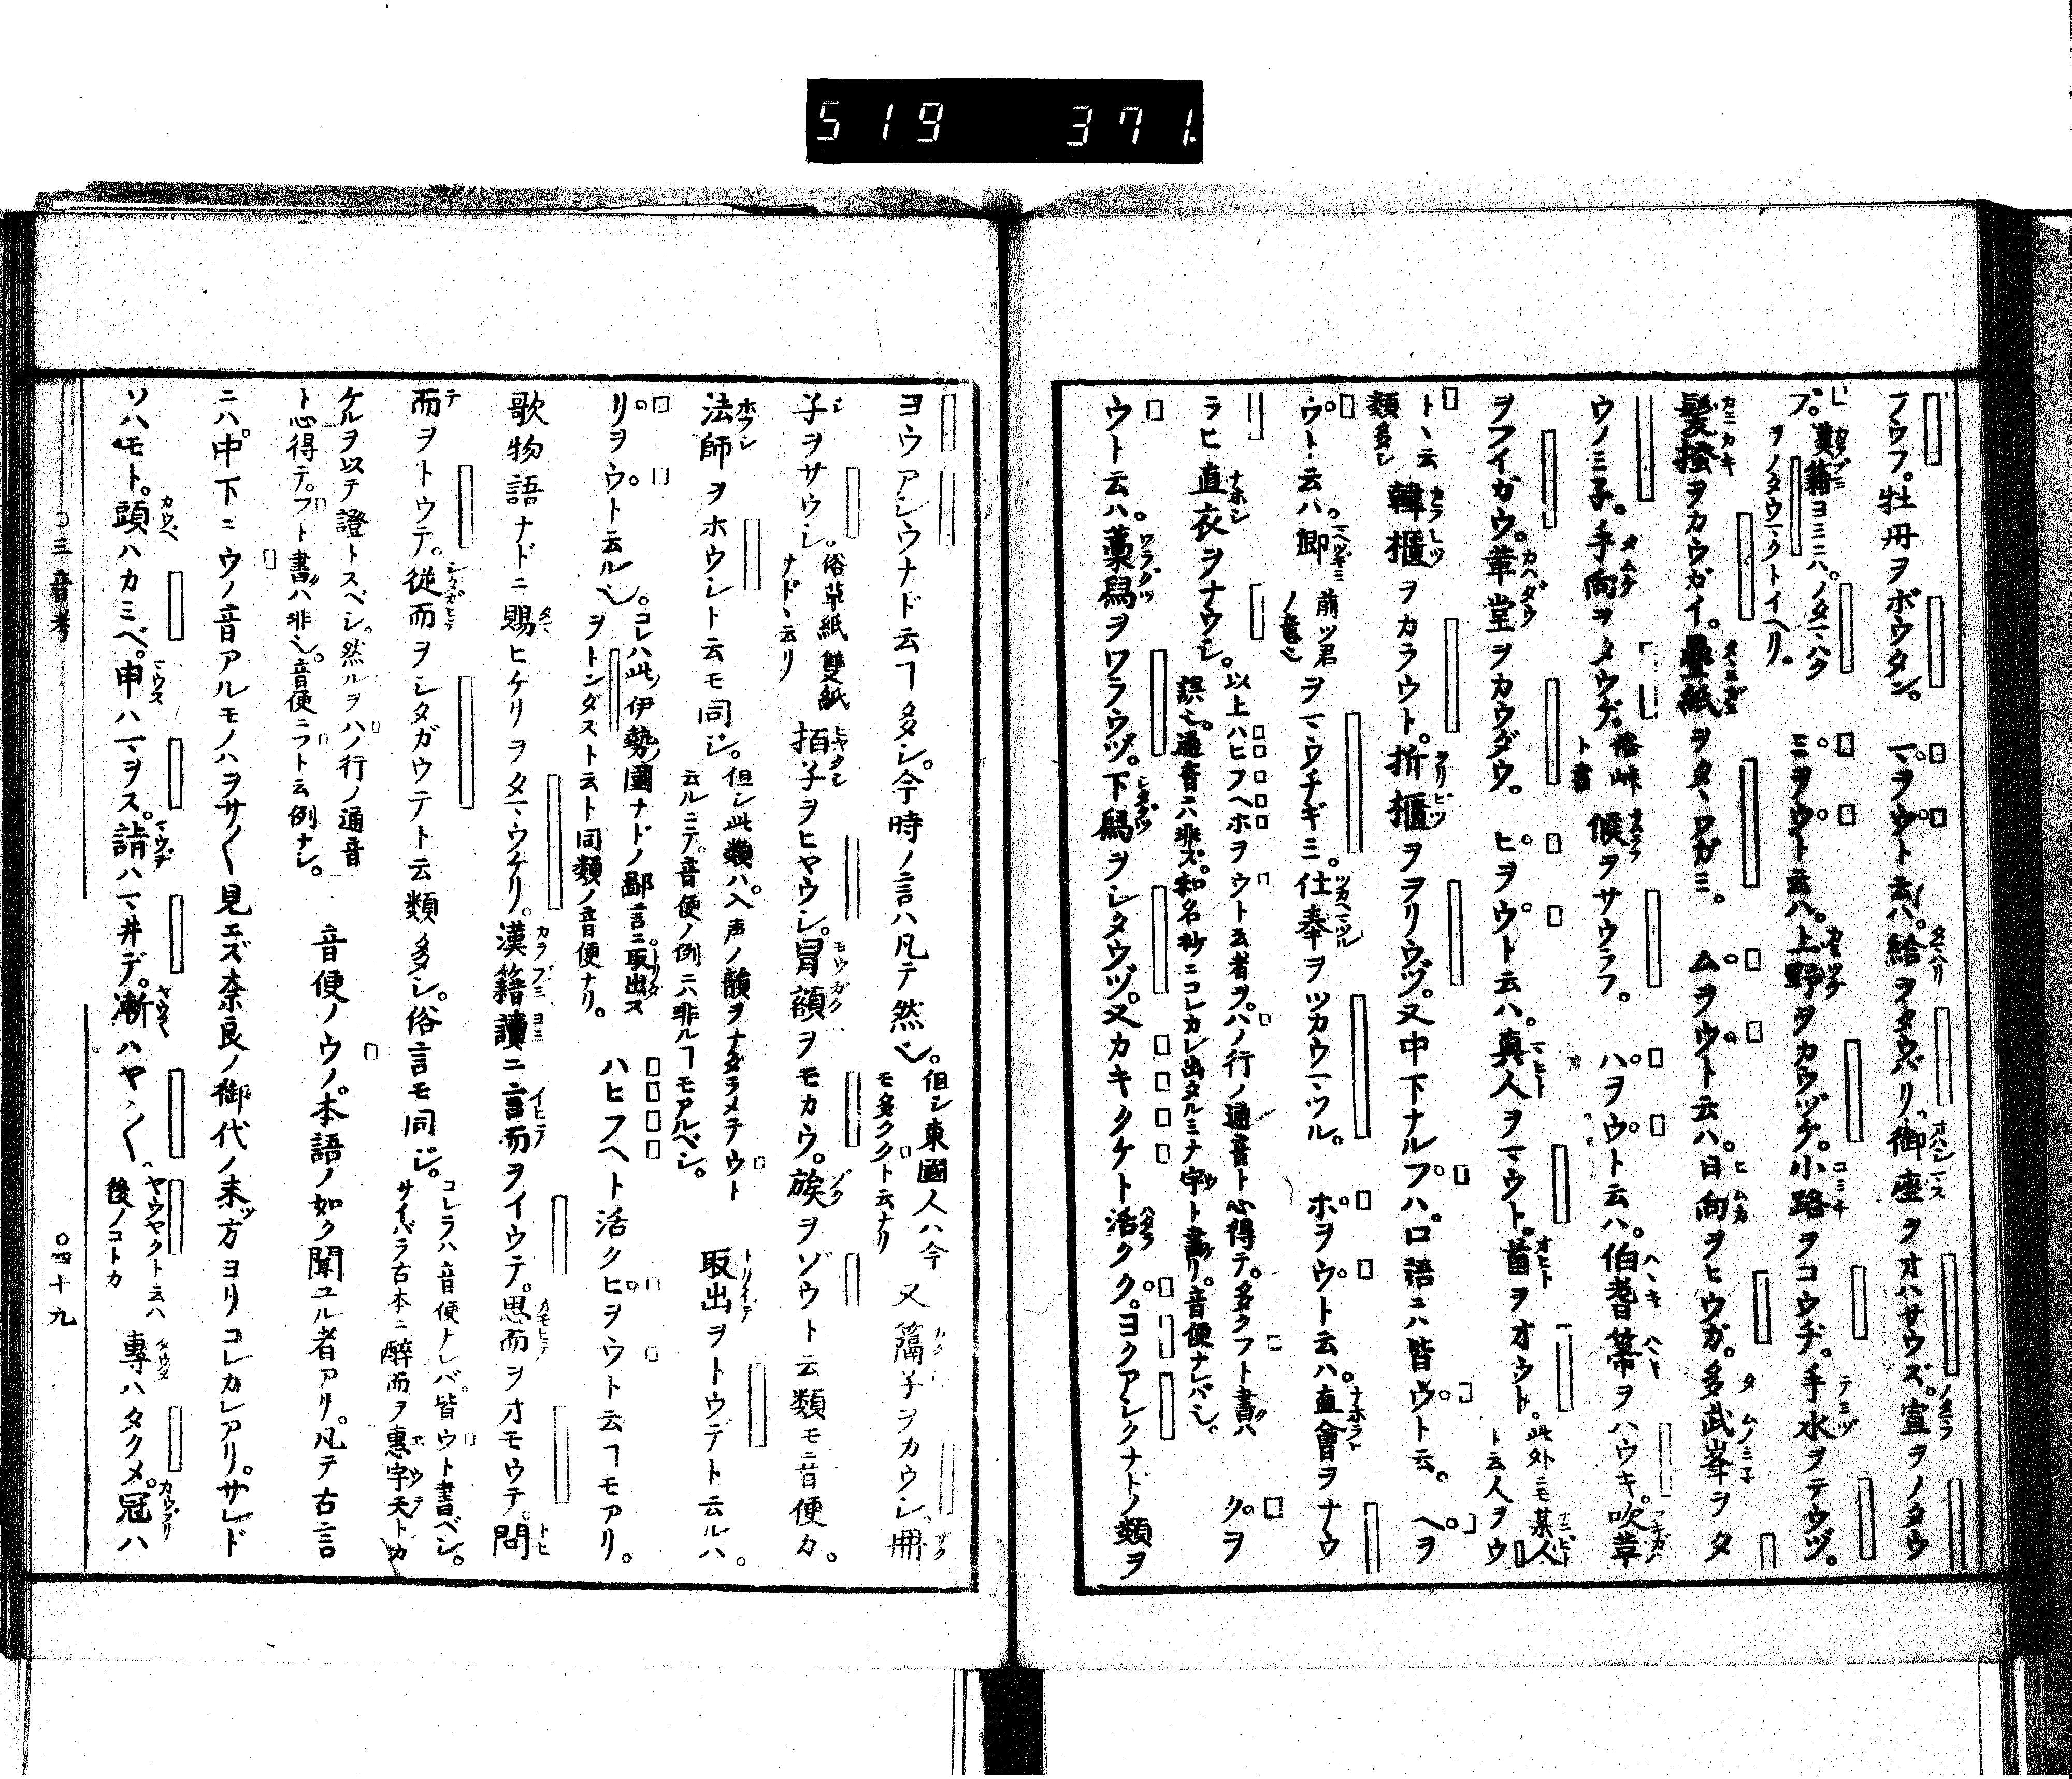 519 371.
フウフ。牡丹ヲボウタン。 マヲウト云ハ。給ヲタウバリ。御座ヲオハサウズ。宣ヲノタウ
フ。漢籍ヨミニハ。ノタマハク
ヲノタウマクトイヘリ。 ミヲウト云ハ。上野ヲカウヅケ。小路ヲコウヂ。手水ヲテウヅ。
髮掻ヲカウガイ。疊紙ヲタヽウガミ。 ムヲウト云ハ。日向ヲヒウガ。多武峯ヲタ
ウノミ子。手向ヲタウゲ。俗峠
ト書 候ヲサウラフ。 ハヲウト云ハ。伯耆箒ヲハウキ。吹革
ヲフイガウ。革堂ヲカウダウ。 ヒヲウト云ハ。真人ヲマウト。首ヲオウト。此外ニモ某人
ト云人ヲウ
トヽ云
類多シ 韓櫃ヲカラウト。折櫃ヲヲリウヅ。又中下ナルフハ。口語ニハ皆ウト云。 ヘヲ
ウト云ハ。卿 前ツ君
ノ意也 ヲマウチギミ。仕奉ヲツカウマツル。 ホヲウト云ハ。直會ヲナウ
ラヒ直衣ヲナウシ。以上ハヒフヘホヲウト云者ヲ。ハノ行ノ通音ト心得テ。多クフト書クハ
誤也。通音ニハ非ズ。和名抄ニコレカレ出タルミナ宇ト書リ。音便ナレバ也。 クヲ
ウト云ハ。藁舄ヲワラウヅ。下舄ヲシタウヅ。又カキクケト活クク。ヨクアシクナトノ類ヲ
ヨウアシウナド云フ多シ。今時ノ言ハ凡テ然也。但シ東國人ハ今
モ多ククト云ナリ 又篇子ヲカウシ。冊
子ヲサウシ。俗草紙雙紙
ナドヽ云リ 拍子ヲヒヤウシ。冐額ヲモカウ。族ヲゾウト云類モ音便カ。
法師ヲホウシト云モ同ジ。但シ此類ハ。入声ノ韻ヲナダラメテウト
云ルニテ。音便ノ例ニハ非ルコモアルベシ。 取出ヲトウデト云ルハ。
リヲウト云ル也。コレハ此ノ伊勢ノ國ナドノ鄙言ニ。取出ス
ヲトンダストト云ト同類ノ音便ナリ。 ハヒフヘト活クヒヲウト云フモアリ。
歌物語ナドニ賜ヒケリヲタマウケリ。漢籍讀ニ言而ヲイウテ。思而ヲオモウテ。問
而ヲトウテ。從而ヲシタガウテト云類多シ。俗言モ同ジ。コレラハ音便ナレバ。皆ウト書ベシ。
サイバラ古本ニ醉而ヲ惠宇天トカ
ケルヲ以テ證トスベシ。然ルヲハノ行ノ通音
ト心得テ。フト書クハ非也。音便ニフト云例ナシ。 音便ノウノ。本語ノ如ク聞ユル者アリ。凡テ古言
ニハ。中下ニウノ音アルモノハヲサ〳〵見エズ奈良ノ御代ノ末ツ方ヨリコレカレアリ。サレド
ソハモト。頭ハカミベ。申ハマヲス。請ハマ井デ。漸ハヤヽ〳〵。ヤウヤクト云ハ
後ノコトカ 專ハタクメ。冠ハ
○三音考 ○四十九